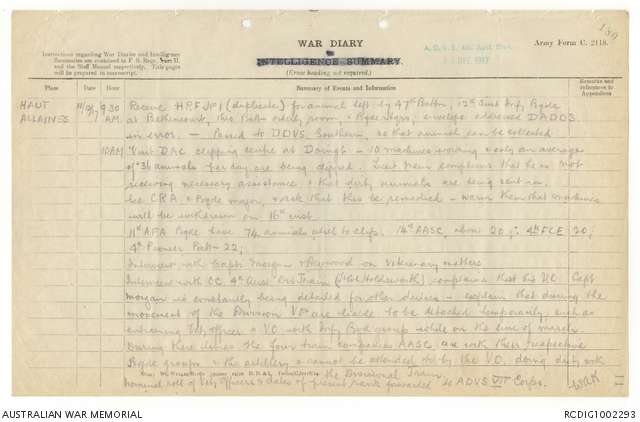 150
WAR DIARY
or
INTELLIGENCE SUMMARY.
(Erase heading not required.)
Army Form C. 2118.
Instructions regarding War Diaries and Intelligence
Summaries are contained in F. S. Regs., Part II.
and the Staff Manual respectively. Title pages
will be prepared in manuscript.
Place
Date
Hour
Summary of Events and Information
Remarks and
references to
Appendices
HAUT ALLAINES 9.30 AM. Receive (duplicate) for animal left by 47th Battn, 12th Aust Inf. Bgde
at thro Battn orderly room & Bgde, envelope addressed DADOS
in error. — Passed to DDVS Southern, so that animal can be collected
10AM Visit DAC clipping centre at Doingt — 10 machines working & only an average
of 36 animals per day are being clipped. Lieut complains that he is not
receiving necessary assistance & that dirty animals are being sent in.
See CRA & Bgde major, & ask that this be remedied — warn them that machines
will be withdrawn on 16th inst.
11th AFA Bgde have 74 animals yet to clip. 14th AASC, about 20; 4th FCE 20;
4th Pioneer Battn — 22;
Interview with Capts Morgan & on Veterinary matters
Interview with OC. 4th Aust Div Train (Holdsworth) complains that his V.O. Capt
Morgan is constantly being detailed for other duties — explain that during the
movement of the Division VOs are liable to be detached temporarily, such as
entraining Vety officer & VO with Inf Bgde group while on the line of march
During these times the four train companies AASC are with their respective
Bgde groups & the artillery & cannot be attended to by the VO, doing duty with
the Divisional Train
nominal roll of Vety Officers & dates of present rank forwarded to ADVS VII Corps.
WAK
AUSTRALIAN WAR MEMORIAL
RCDIG1002293